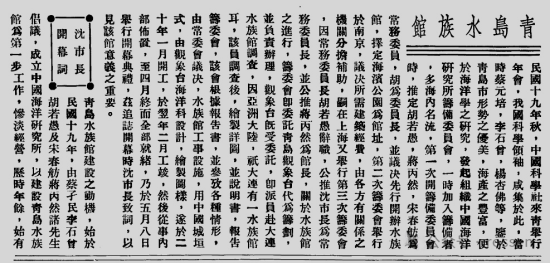 青島水族館
民國十九年秋，中國科學社來青舉行
年會，我國科學領袖，咸集於此，當
時蔡元培，李石曾，楊杏佛等，鑒於
青島市形勢之優美，海產之豐富，便
於海洋學之研究，發起組織中國海洋
研究所籌備委員會，一時加入籌備委員
，多海內名流。第一次開籌備委員會
時，推定胡若愚，蔣丙然，宋春舫為
常務委員，胡為委員長，並議決先行開辦水族
館，擇定海濱公園為館址，第二次籌委會舉行
於南京，議決所需建築經費，由各方有關係之
機關分擔補助，嗣在上海又舉行第三次籌委會
，因常務委員長胡若愚辭職，公推沈市長為常
務委員長，並公推蔣丙然為館長，關於水族館
之進行，籌委會即委託青島觀象台代為籌劃，
並負責辦理，觀象台既受委託，即派員赴大連
水族館調查，因亞洲大陸，祇大連有一水族館
耳，該員調查後，繪製詳圖，並說明書，報告
籌委會，該會根據報告書，並參攷各種情形，
由常委會議決，水族館工事設施，用中國城垣
式，由觀象台海洋科設計，繪製圖樣，遂於二
十年一月開工，於翌年二月工竣，然後從事內
部佈置，至四月終而全部就緒，乃於五月八日
舉行開幕典禮，茲追誌開幕時沈市長致詞，以
見該館意義之重要。
沈市長
開幕詞
青島水族館建設之動機，始於
民國十九年，由蔡孑民李石曾
胡若愚及宋春舫蔣丙然諸先生
倡議，成立中國海洋研究所，以建設青島水族
館為第一步工作，慘淡經營，歷時年餘，始有